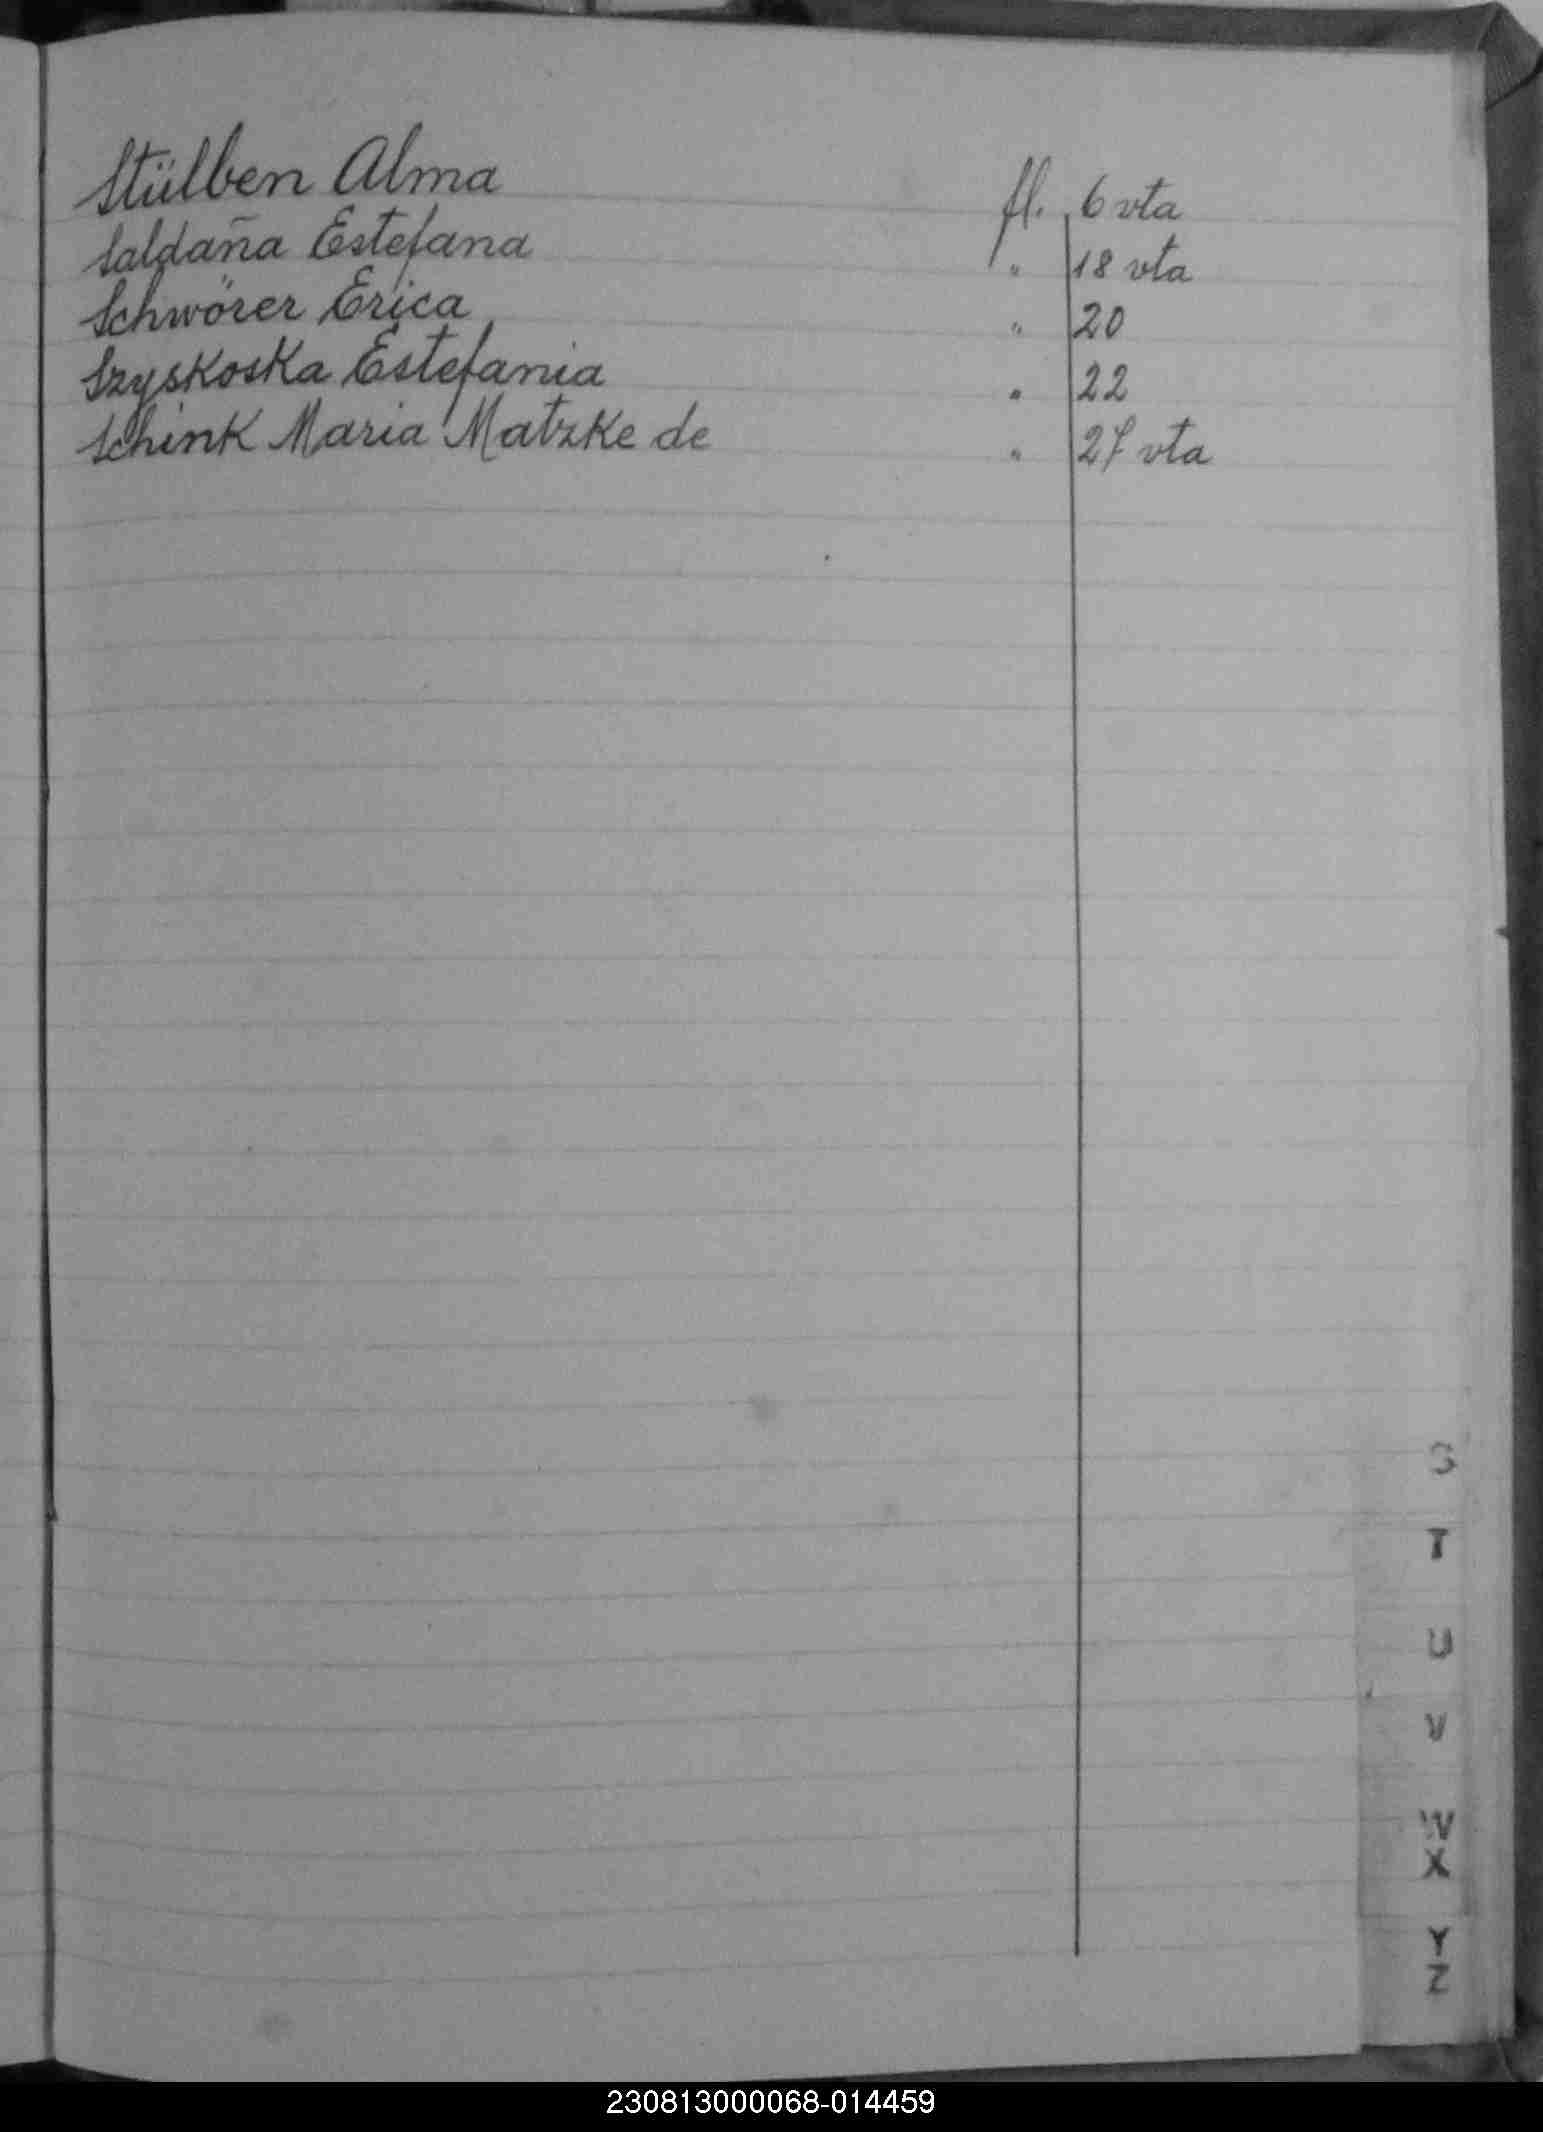 Stülben Alma fl. 6 vta
Saldaña Estefana " 18 vta
Schwörer Erica " 20
Szyskoska Estefania " 22
Schink Maria Matzke de " 27 vta
S
T
U
V
W
X
Y
Z
230813000068-014459